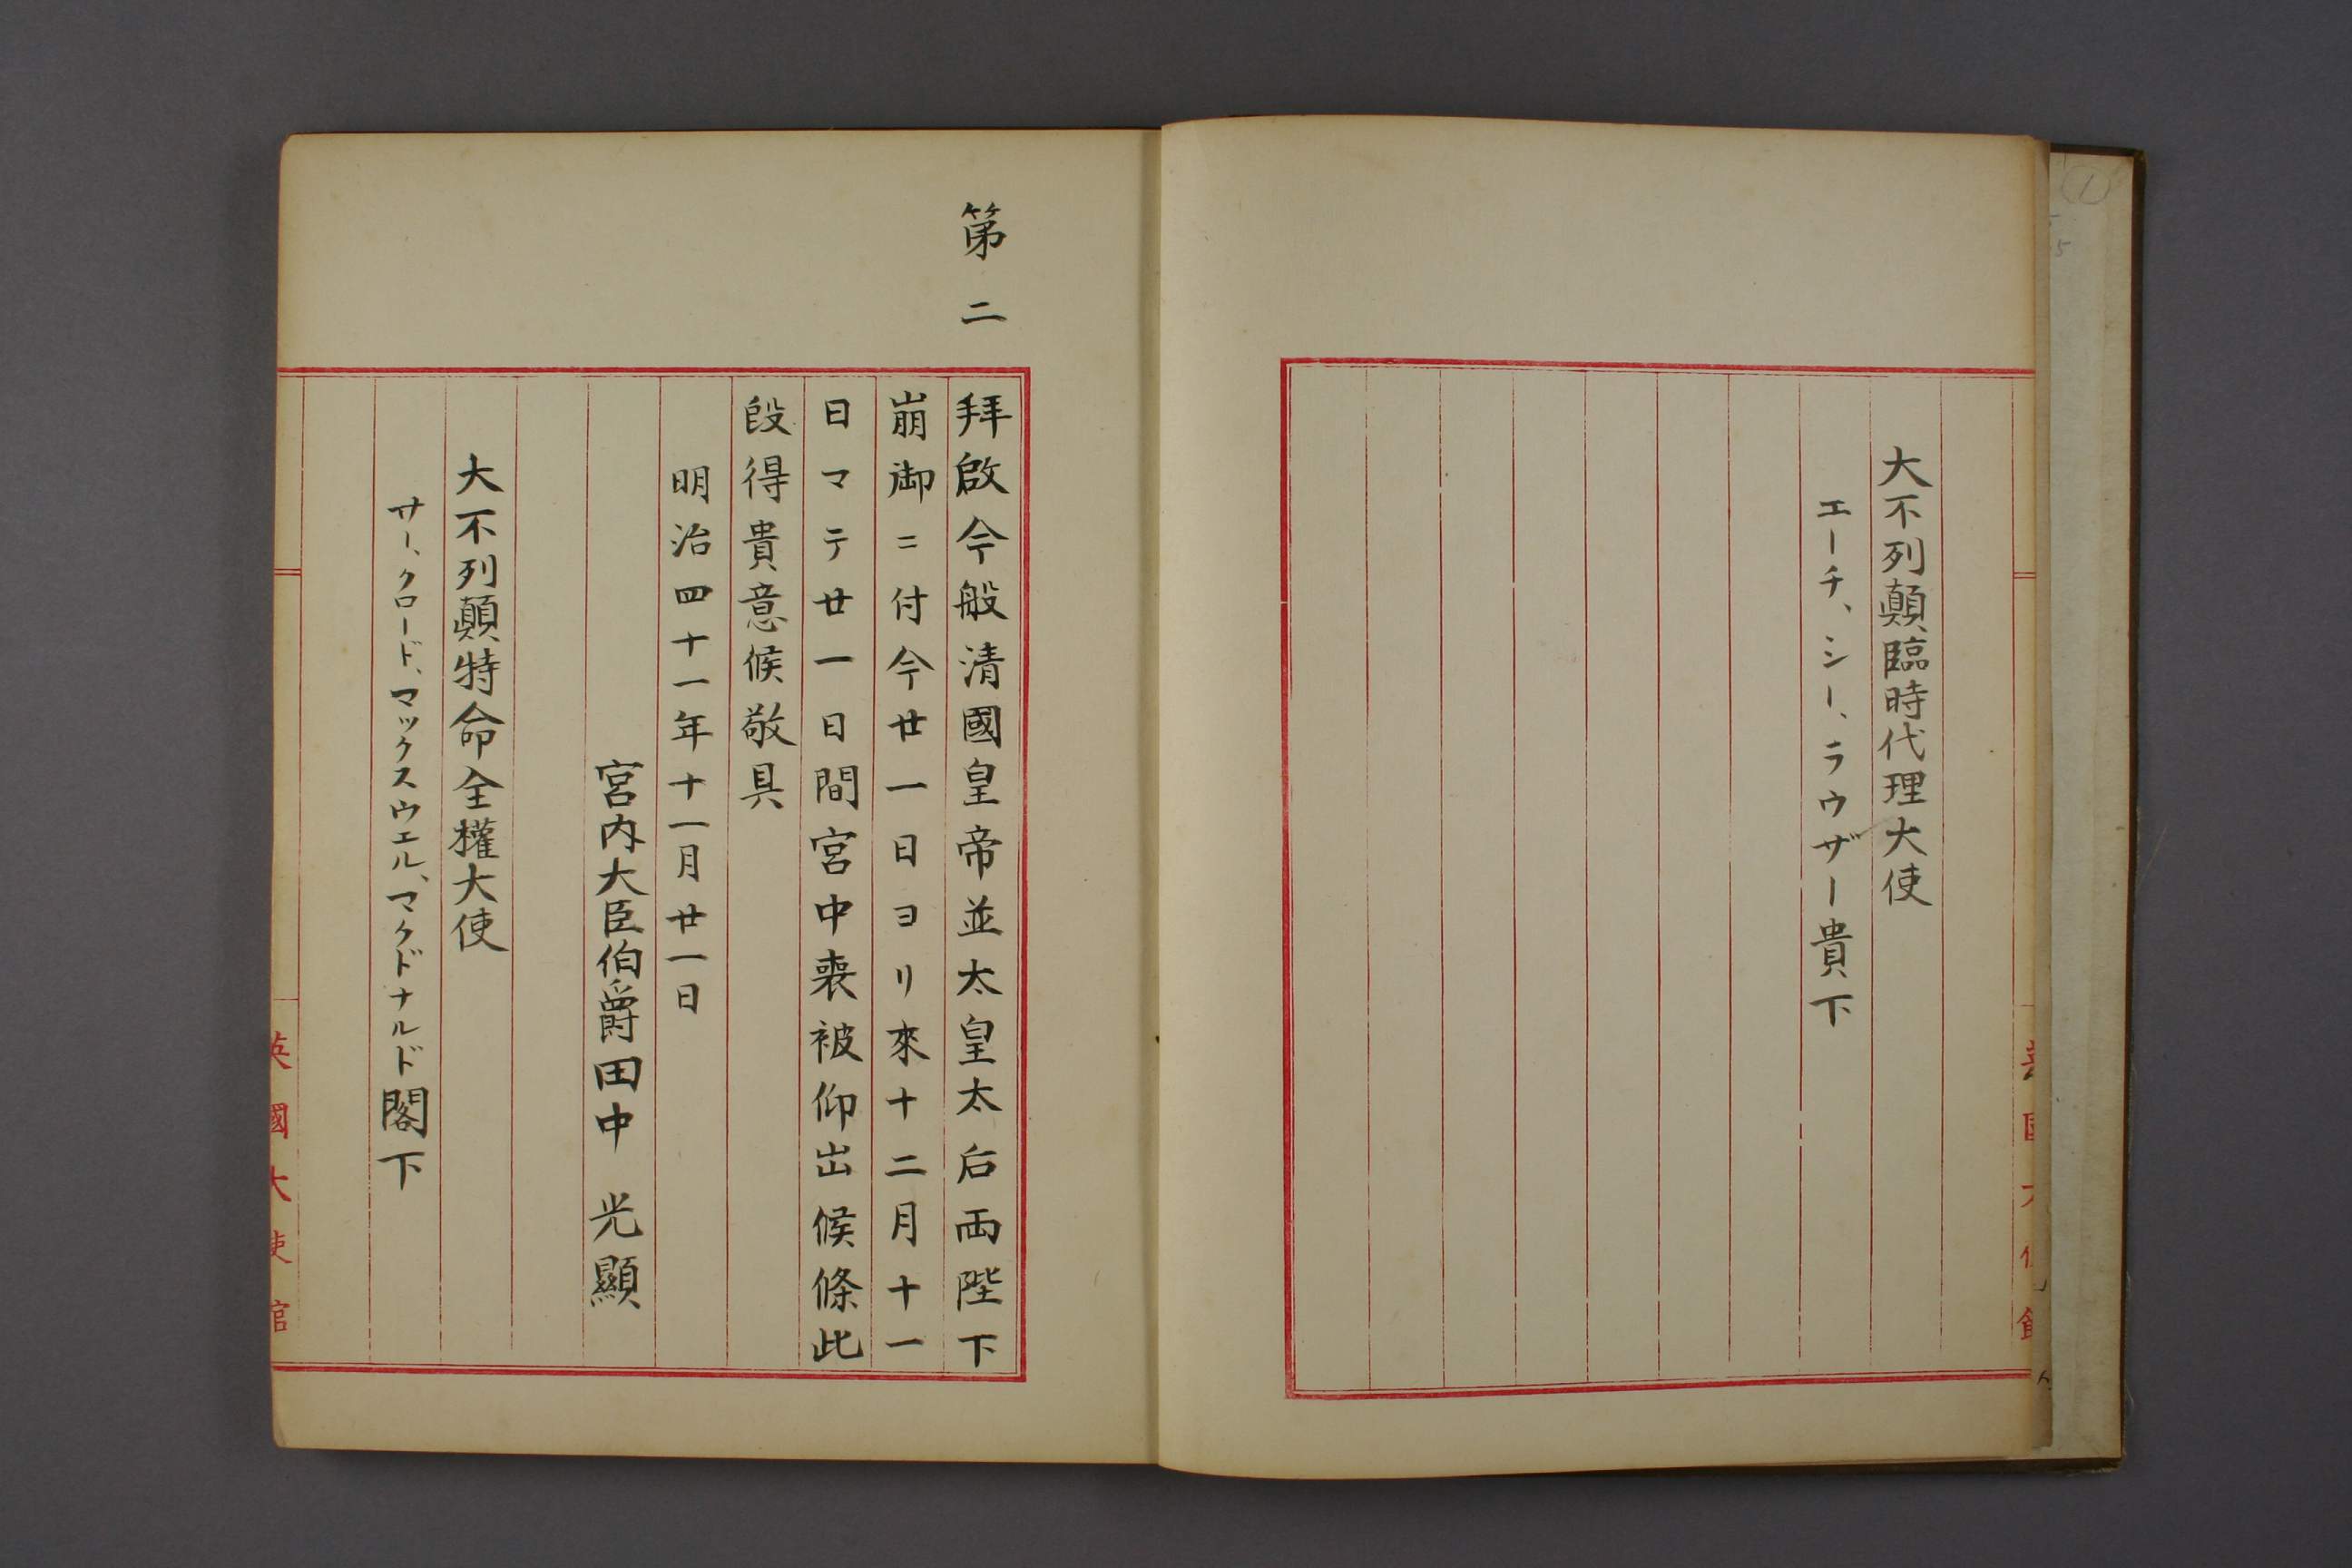 大不列顛臨時代理大使
エーチ、シー、ラウザー貴下
英國大使館
第二
拝啟今般清國皇帝並太皇太后両陛下
崩御ニ付今廿一日ヨリ來十二月十一
日マテ廿一日間宮中喪被仰出候條此
段得貴意候敬具
明治四十一年十一月廿一日
宮内大臣伯爵田中光顯
大不列顛特命全權大使
サー、クロード、マックスウエル、マクドナルド閣下
英國大使館